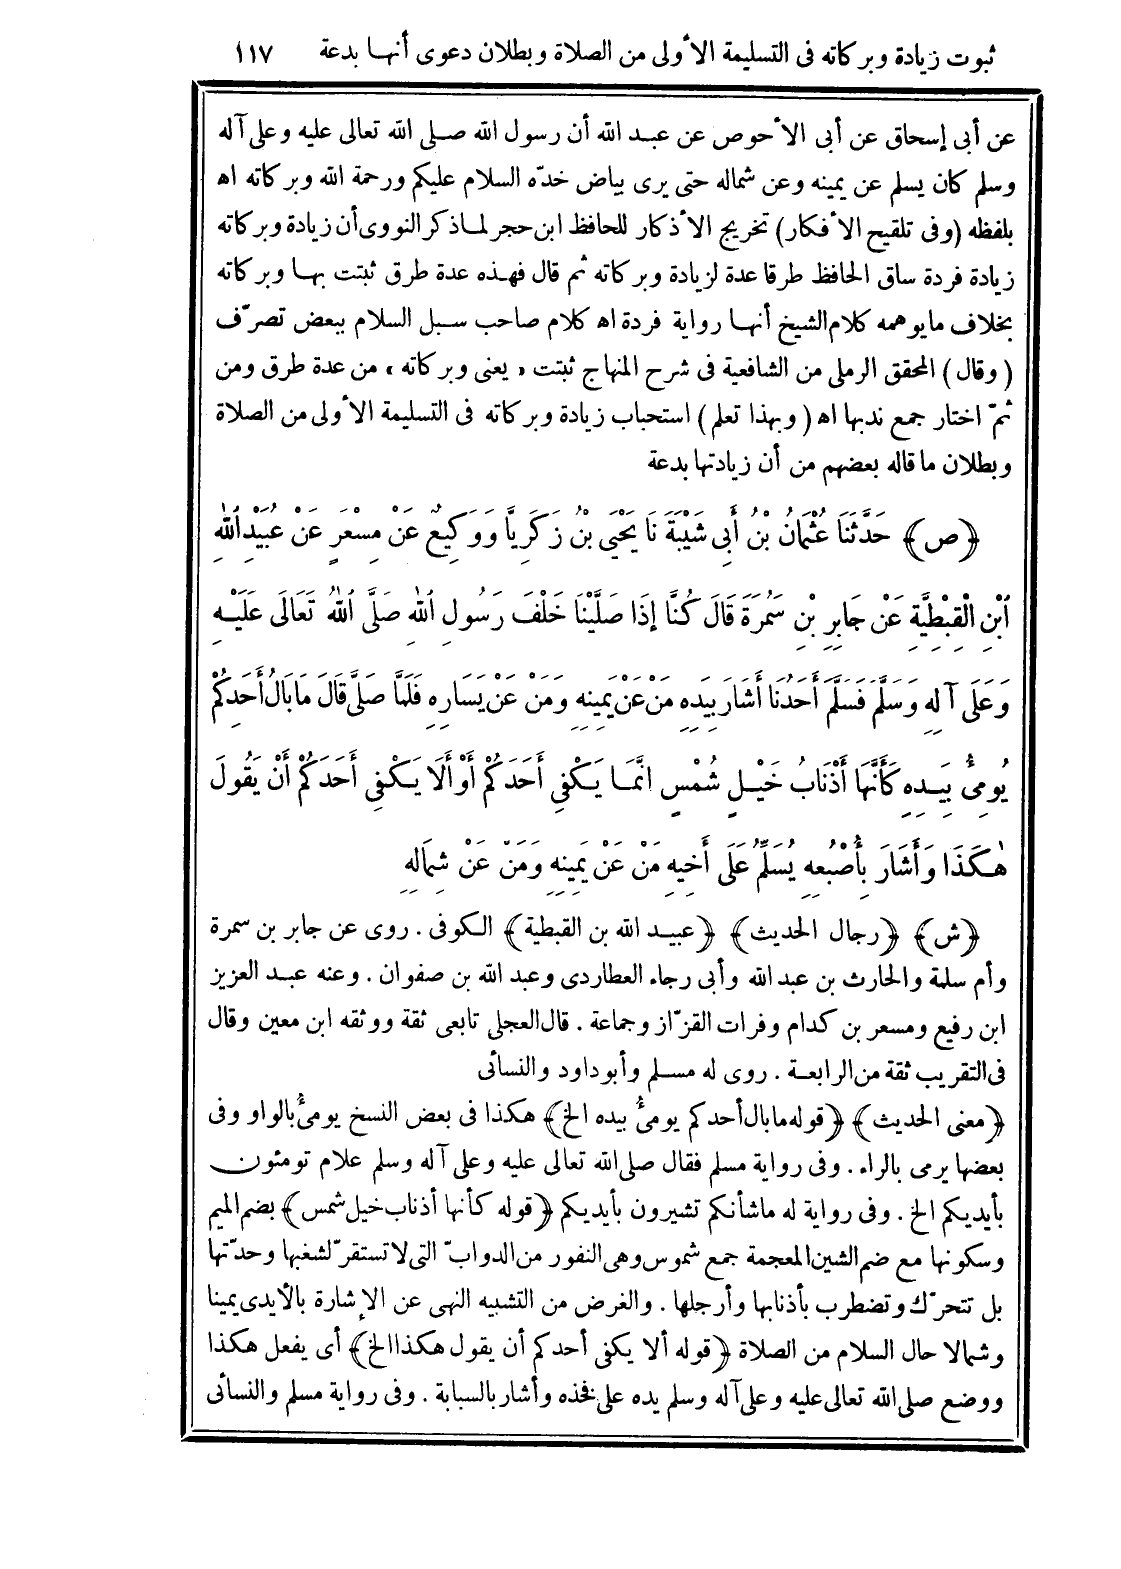 ثبوت زيادة وبركاته فى التسليمة الأولى من الصلاة وبطلان دعوى أنها بدعة ١١٧
عن أبى إسحاق عن أبى الأحوص عن عبد الله أن رسول الله صلى الله تعالى عليه وعلى آله
وسلم كان يسلم عن يمينه وعن شماله حتى يرى بياض خدّه السلام عليكم ورحمة الله وبركاته اه
بلفظه (وفى تلقيح الأفكار) تخريج الأذكار للحافظ ابن حجر لما ذكر النووى أن زيادة وبركاته
زيادة فردة ساق الحافظ طرقا عدة لزيادة وبركاته ثم قال فهذه عدة طرق ثبتت بها وبركاته
بخلاف ما يوهمه كلام الشيخ أنها رواية فردة اه كلام صاحب سبل السلام ببعض تصرّف
(وقال) المحقق الرملى من الشافعية فى شرح المنهاج ثبتت «يعنى وبركاته» من عدة طرق ومن
ثمّ اختار جمع ندبها اه (وبهذا تعلم) استحباب زيادة وبركاته فى التسليمة الأولى من الصلاة
وبطلان ما قاله بعضهم من أن زيادتها بدعة
﴿ص﴾ حَدَّثَنَا عُثْمَانُ بْنُ أَبِي شَيْبَةَ نَا يَحْيَى بْنُ زَكَرِيَّا وَوَكِيعٌ عَنْ مِسْعَرٍ عَنْ عُبَيْدِ اللهِ
ابْنِ الْقِبْطِيَّةِ عَنْ جَابِرِ بْنِ سَمُرَةَ قَالَ كُنَّا إِذَا صَلَّيْنَا خَلْفَ رَسُولِ اللهِ صَلَّى اللهُ تَعَالَى عَلَيْهِ
وَعَلَى آلِهِ وَسَلَّمَ فَسَلَّمَ أَحَدُنَا أَشَارَ بِيَدِهِ مَنْ عَنْ يَمِينِهِ وَمَنْ عَنْ يَسَارِهِ فَلَمَّا صَلَّى قَالَ مَا بَالُ أَحَدِكُمْ
يُومِئُ بِيَدِهِ كَأَنَّهَا أَذْنَابُ خَيْلٍ شُمْسٍ انَّمَا يَكْفِي أَحَدَكُمْ أَوْ أَلَا يَكْفِي أَحَدَكُمْ أَنْ يَقُولَ
هٰكَذَا وَأَشَارَ بِأُصْبُعِهِ يُسَلِّمُ عَلَى أَخِيهِ مَنْ عَنْ يَمِينِهِ وَمَنْ عَنْ شِمَالِهِ
﴿ش﴾ ﴿رجال الحديث﴾ ﴿عبيد الله بن القبطية﴾ الكوفى. روى عن جابر بن سمرة
وأم سلمة والحارث بن عبد الله وأبى رجاء العطاردى وعبد الله بن صفوان. وعنه عبد العزيز
ابن رفيع ومسعر بن كدام وفرات القزّاز وجماعة. قال العجلى تابعى ثقة ووثقه ابن معين وقال
فى التقريب ثقة من الرابعة. روى له مسلم وأبو داود والنسائى
﴿معنى الحديث﴾ ﴿قوله ما بال أحدكم يومئُ بيده الخ﴾ هكذا فى بعض النسخ يومئُ بالواو وفى
بعضها يرمى بالراء. وفى رواية مسلم فقال صلى الله تعالى عليه وعلى آله وسلم علام تومئون
بأيديكم الخ. وفى رواية له ما شأنكم تشيرون بأيديكم ﴿قوله كأنها أذناب خيل شمس﴾ بضم الميم
وسكونها مع ضم الشين المعجمة جمع شموس وهى النفور من الدوابّ التى لا تستقرّ لشغبها وحدّتها
بل تتحرّك وتضطرب بأذنابها وأرجلها. والغرض من التشبيه النهى عن الإشارة بالأيدى يمينا
وشمالا حال السلام من الصلاة ﴿قوله ألا يكفى أحدكم أن يقول هكذا الخ﴾ أى يفعل هكذا
ووضع صلى الله تعالى عليه وعلى آله وسلم يده على فخذه وأشار بالسبابة. وفى رواية مسلم والنسائى